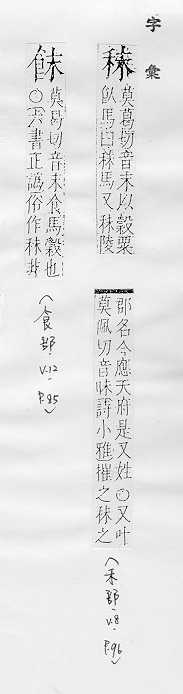 字彙
秣
莫葛切音末以穀粟
飤馬曰秣馬又秣陵
郡名今應天府是又姓○又叶
莫佩切音昧詩小雅摧之秣之
(禾部, V.8, P.96)
䬴
莫葛切音末食馬穀也
○六書正譌俗作秣非
(食部, V.12, P.85)